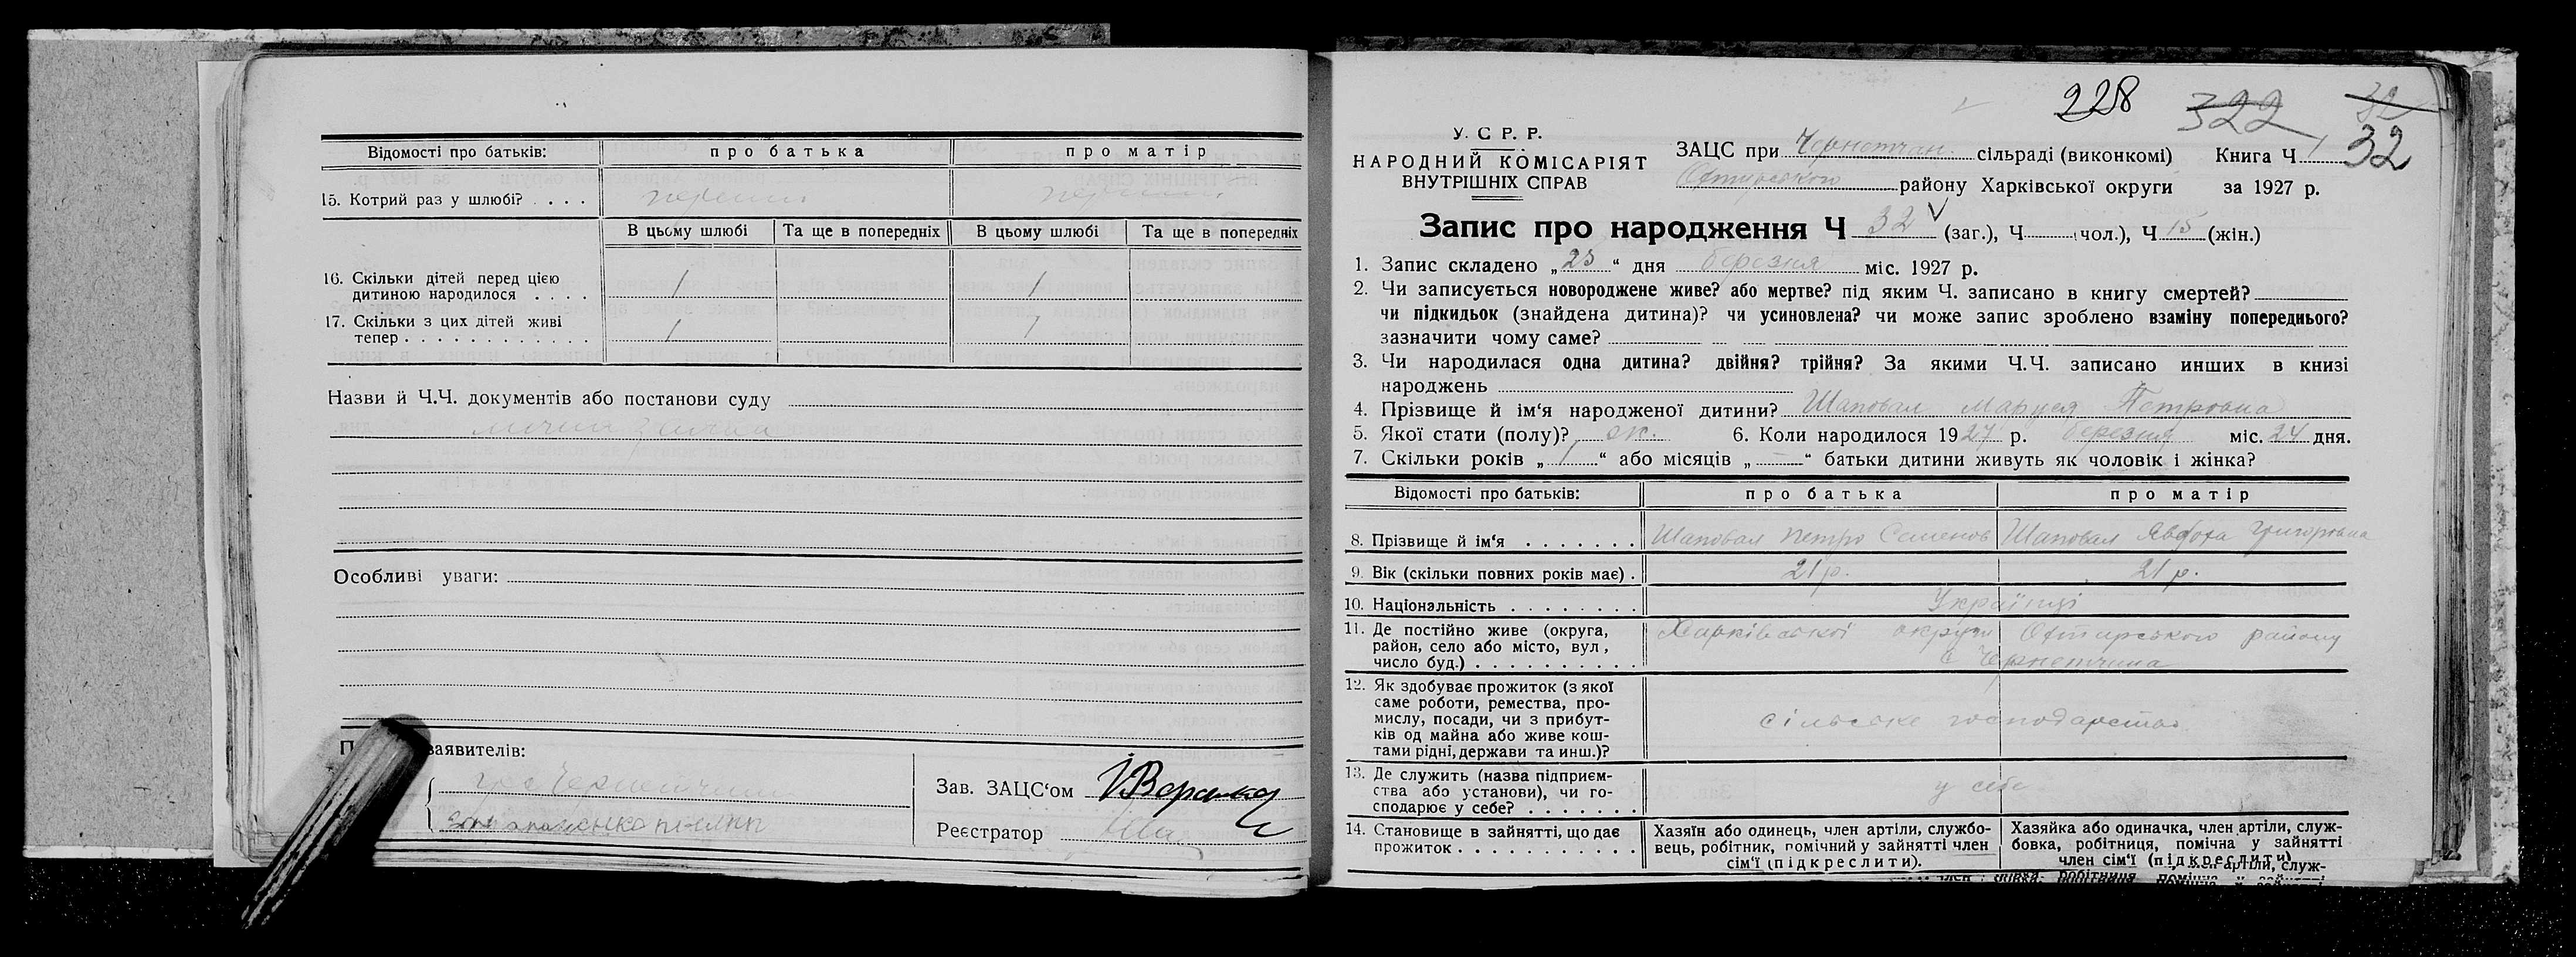 Відомості про батьків: про батька про матір
15. Котрий раз у шлюбі? . . . . перший перший
В цьому шлюбі Та ще в попередніх В цьому шлюбі Та ще в попередніх
16. Скільки дітей перед цією
дитиною народилося . . . . 1 1
17. Скільки з цих дітей живі
тепер . . . . . . . . . . . . 1 1
Назви й Ч.Ч. документів або постанови суду
Особливі уваги:
заявителів:
гр. с Чернетчини
Зав. ЗАЦС‘ом
Реєстратор
228 322 32
32
У. С Р. Р.
НАРОДНИЙ КОМІСАРІЯТ
ВНУТРІШНІХ СПРАВ
ЗАЦС при Чернетчан. сільраді (виконкомі) Книга Ч 1
Охтирського району Харківської округи за 1927 р.
Запис про народження Ч 32 (заг.), Ч чол.), Ч 15 (жін.)
1. Запис складено „ 25 “ дня березня міс. 1927 р.
2. Чи записується новороджене живе? або мертве? під яким Ч. записано в книгу смертей?
чи підкидьок (знайдена дитина)? чи усиновлена? чи може запис зроблено взаміну попереднього?
зазначити чому саме?
3. Чи народилася одна дитина? двійня? трійня? За якими Ч.Ч. записано инших в книзі
народжень
4. Прізвище й ім‘я народженої дитини? Шаповал Маруся Петровна
5. Якої стати (полу)? ж. 6. Коли народилося 1927 р. березня міс. 24 дня.
7. Скільки років „ 1 “ або місяців „ — “ батьки дитини живуть як чоловік і жінка?
Відомості про батьків: про батька про матір
8. Прізвище й ім‘я . . . . . . . Шаповал Петро Семенов Шаповал Явдоха Григоровна
9. Вік (скільки повних років має) . 21 р. 21 р.
10. Національність . . . . . . . . Українці
11. Де постійно живе (округа, Харківської округи Охтирського району
район, село або місто, вул,
число буд.) . . . . . . . . . . с Чернетчина
12. Як здобуває прожиток (з якої
саме роботи, ремества, про-
мислу, посади, чи з прибут- сільське господарство
ків од майна або живе кош-
тами рідні, держави та инш.)?
13. Де служить (назва підприєм-
ства або установи), чи го- у себе
сподарює у себе? . . . . . . .
14. Становище в зайнятті, що дає Хазяїн або одинець, член артіли, службо- Хазяйка або одиначка, член артіли, служ-
прожиток . . . . . . . . . . . вець, робітник, помічний у зайнятті член бовка, робітниця, помічна у зайнятті
сім‘ї (підкреслити). член сім‘ї (підкреслити)
артіли, служ-